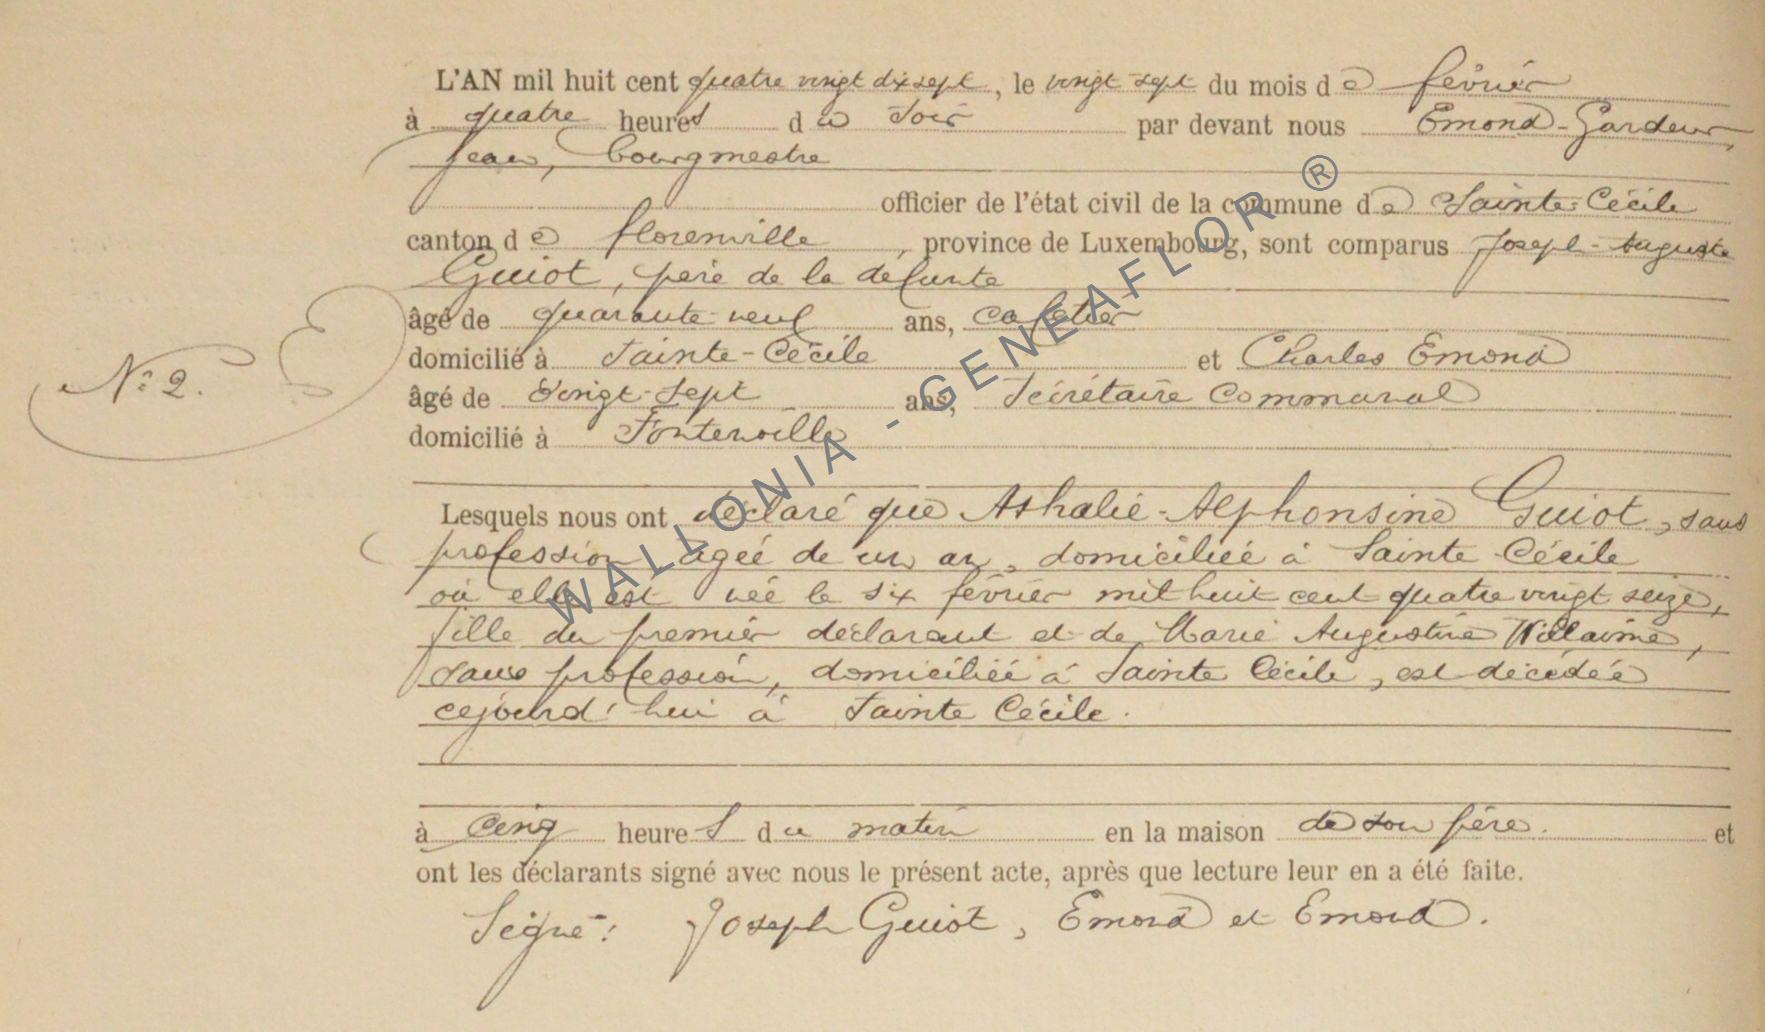 L'AN mil huit cent quatre vingt dix sept, le vingt sept du mois de février
à quatre heures du soir par devant nous Emond-Gardeur
Jean, bourgmestre
officier de l'état civil de la commune de Sainte-Cécile
canton de florenville, province de Luxembourg, sont comparus Joseph-Auguste
Guiot, père de la défunte
âgé de quarante-neuf ans, cafetier
domicilié à Sainte-Cécile et Charles Emond
N° 2.
âgé de vingt-sept ans, Secrétaire Communal
domicilié à Fontenoille
Lesquels nous ont déclaré que Athalie-Alphonsine Guiot, sans
profession âgée de un an, domiciliée à Sainte Cécile
où elle est née le six février mil huit cent quatre vingt seize,
fille du premier déclarant et de Marie Augustine Willaime,
sans profession, domiciliée à Sainte Cécile, est décédée
cejourd'hui à Sainte Cécile.
à cinq heures du matin en la maison de son père. et
ont les déclarants signé avec nous le présent acte, après que lecture leur en a été faite.
Signé: Joseph Guiot, Emond et Emond.
WALLONIA - GENEAFLOR ®